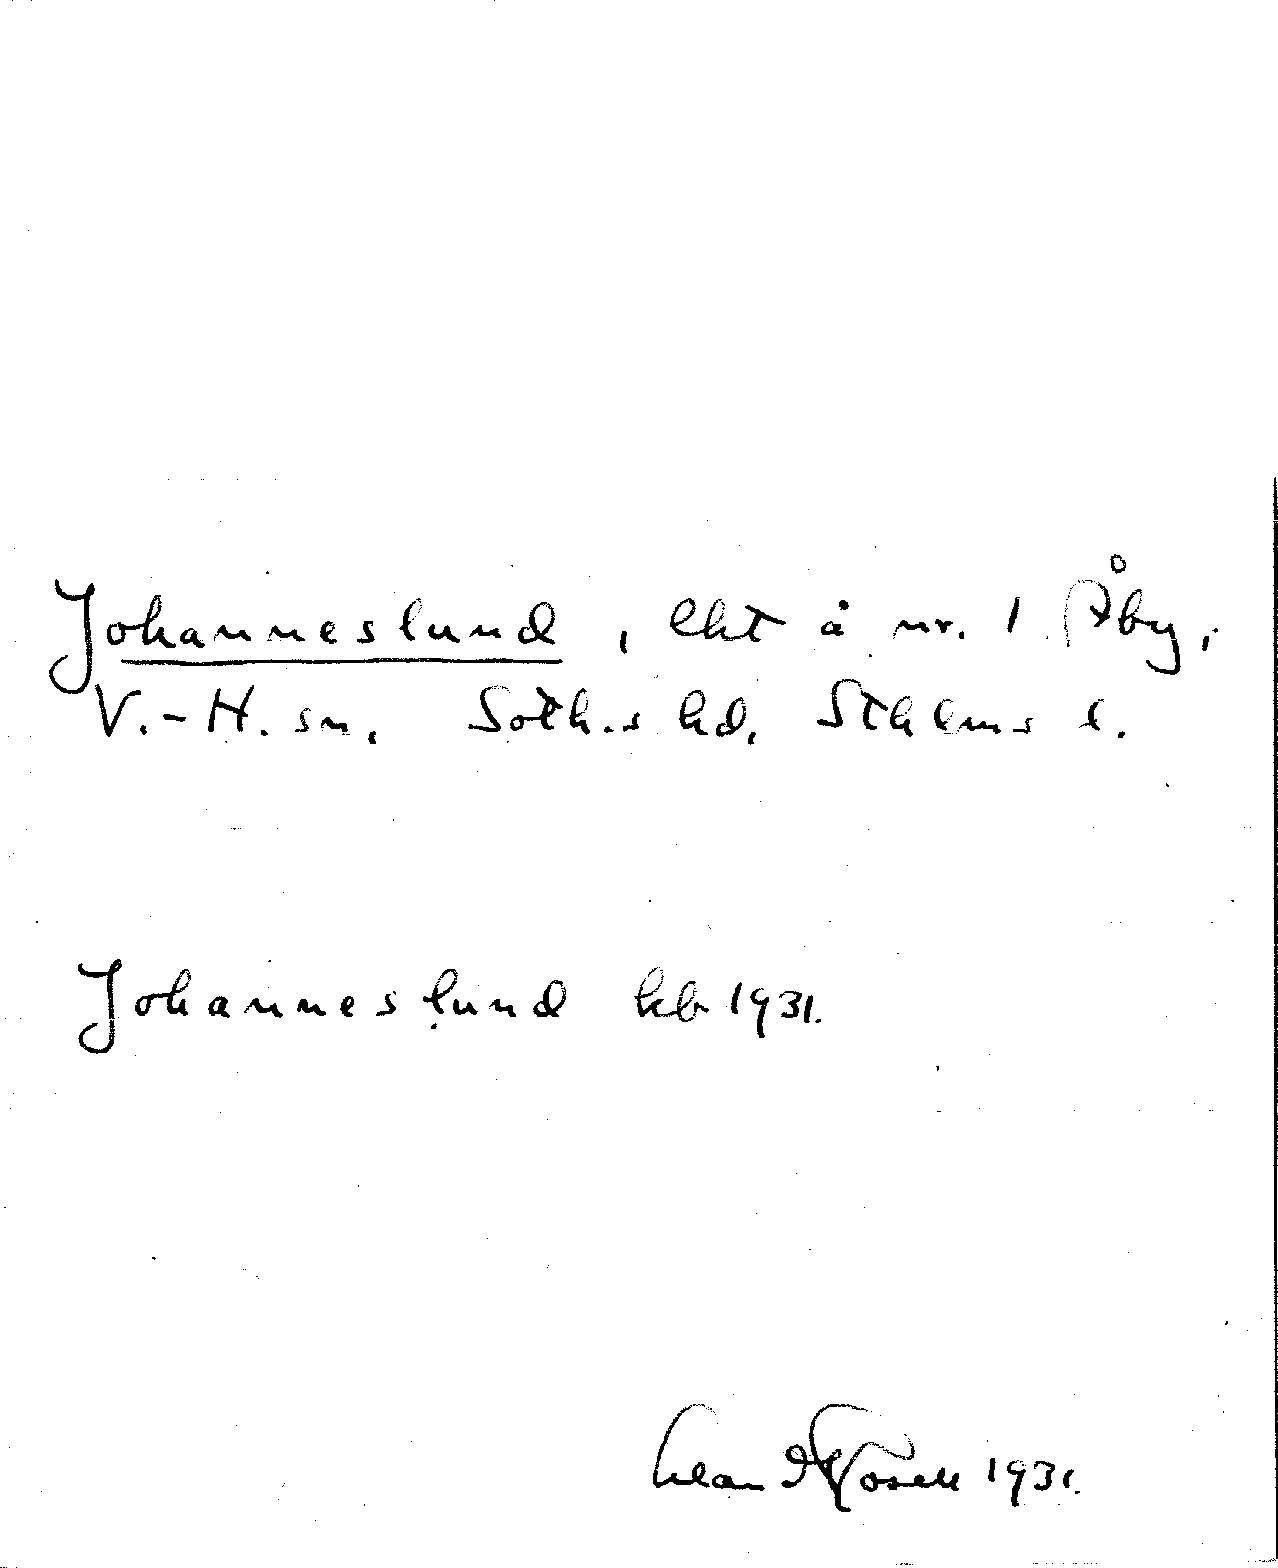 Johanneslund, lht å nr. 1 Åby,
V.-H. sn, Soth.s hd, Sthlms l.
Johanneslund kb 1931.
1931.